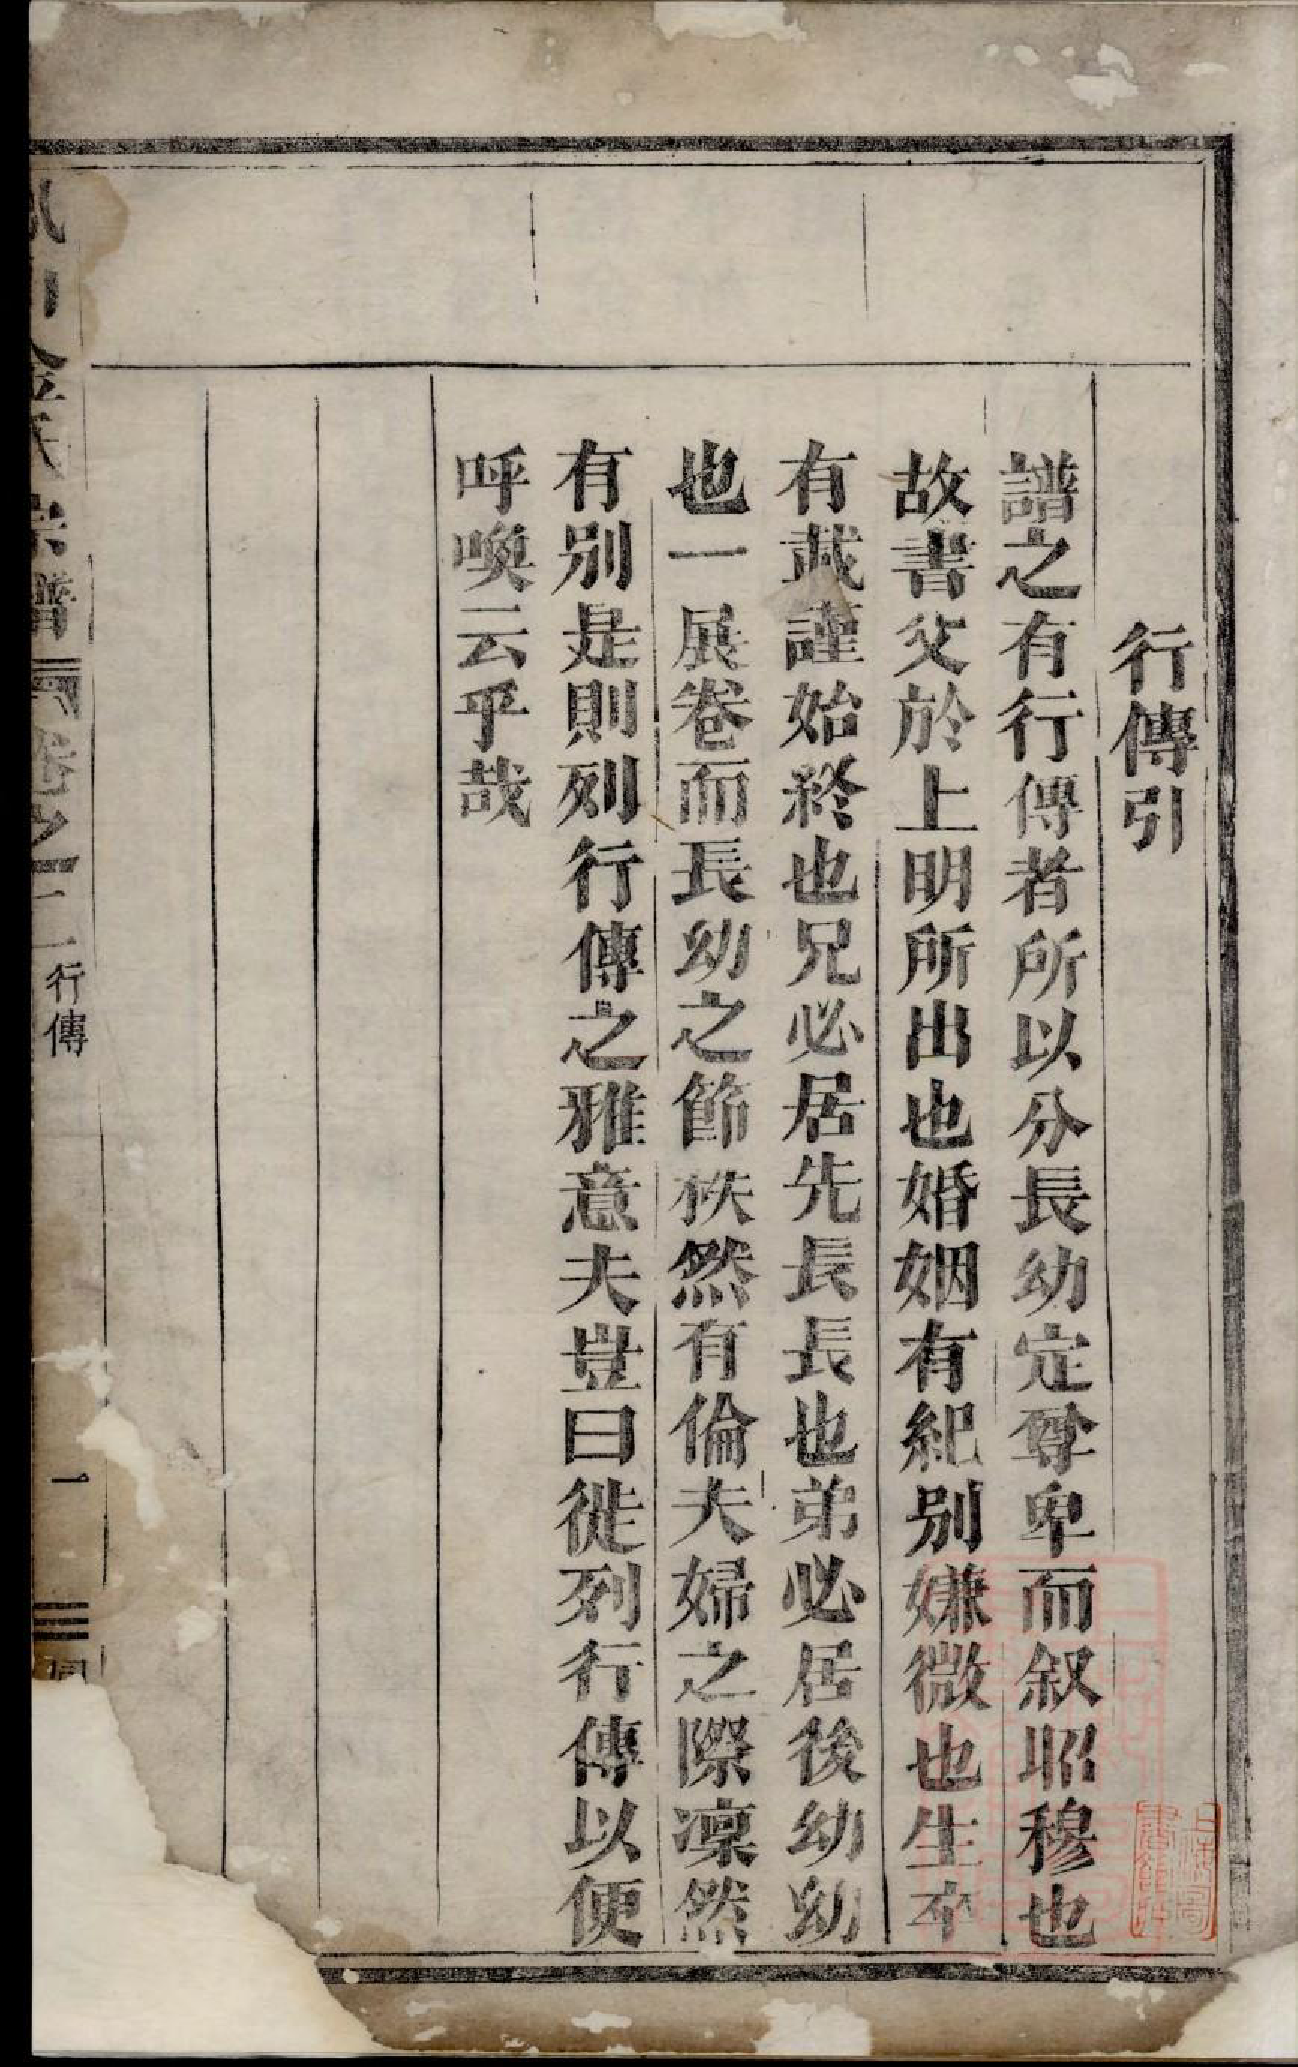 行傳引
譜之有行傳者所以分長幼定尊卑而叙昭穆也
故書父於上明所出也婚姻有紀別嫌微也生卒
有載謹始終也兄必居先長長也弟必居後幼幼
也一展卷而長幼之節秩然有倫夫婦之際凜然
有別是則列行傳之雅意夫豈曰徙列行傳以便
呼喚云乎哉
氏宗譜
卷之二
行傳
一
上海圖書館藏